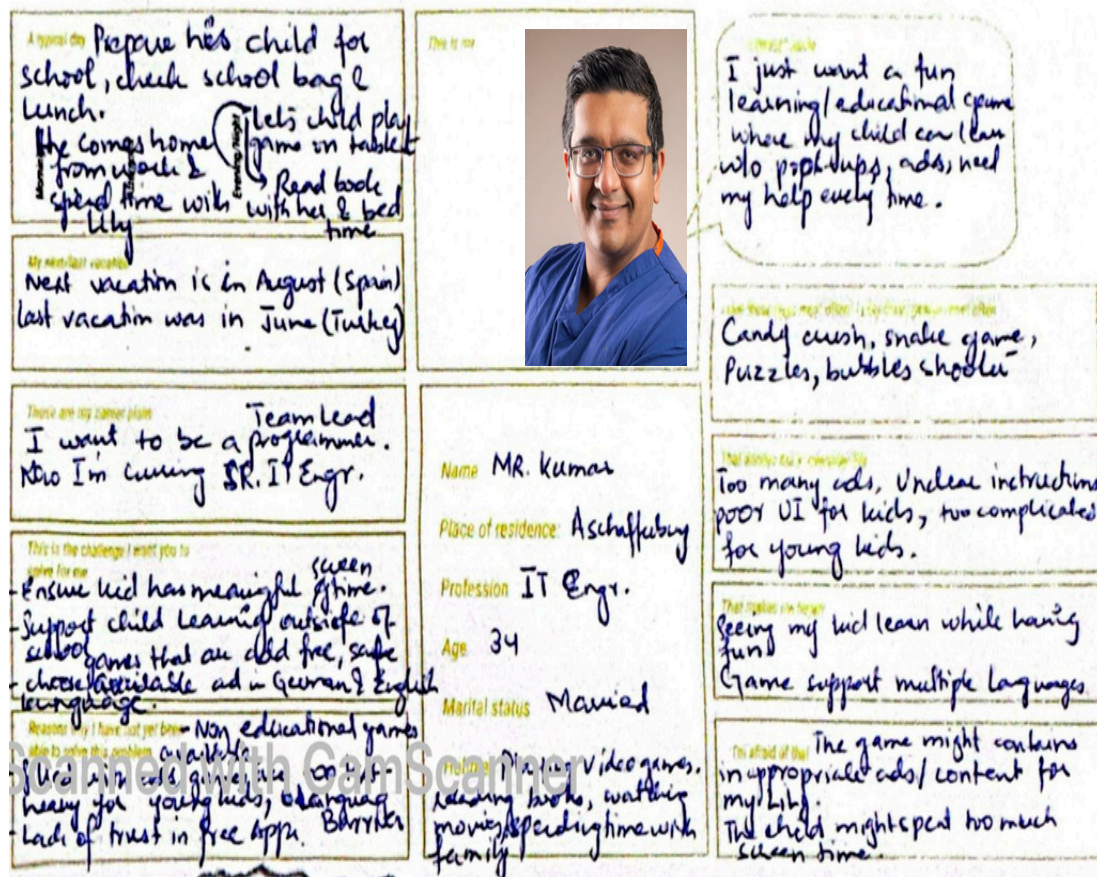 A typical day Prepare his child for
school, check school bag &
Lunch.
He comes home
from work &
spend time with
Lily
Evening/Night
Lets child play
game on tablet
Read book
with her & bed
time
My next/last vacation
Next vacation is in August (Spain)
last vacation was in June (Turkey)
These are my career plans
Team Lead
I want to be a programmer.
Now I'm SR. IT Engr.
This is the challenge I want you to
solve for me
- Ensure kid has meaningful screen time.
- Support child learning outside of
school
games that are add free, safe
- choose available ad in German & English
language.
Reasons why I have not yet been
able to solve this problem
- Non educational games
ads, games are too text-
heavy for young kids, Language
Barriers
- Lack of trust in free apps.
This is me
Name MR. Kumar
Place of residence: Aschaffenburg
Profession IT Engr.
Age 34
Marital status Married
Hobbies Playing Video games.
reading books, watching
movies, spending time with
family
I just want a fun
learning/educational game
where my child can learn
w/o pop-ups, ads, need
my help every time.
Candy crush, snake game,
Puzzles, bubbles shooter
Too many ads, Unclear instructions
poor UI for kids, too complicated
for young kids.
That makes me happy
Seeing my kid learn while having
fun
Game support multiple languages
I'm afraid of that The game might contains
inappropriate ads/content for
my Lily.
The child might spent too much
screen time.
Scanned with CamScanner